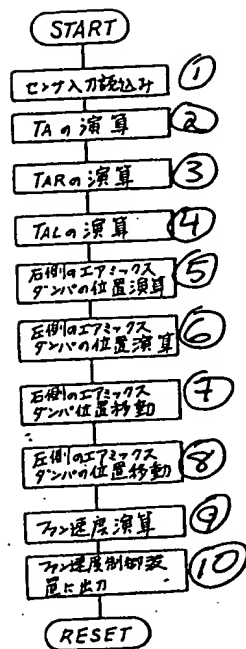 START
センサ入力読込み ①
TAの演算 ②
TARの演算 ③
TALの演算 ④
右側のエアミックス ⑤
ダンパの位置演算
左側のエアミックス ⑥
ダンパの位置演算
右側のエアミックス ⑦
ダンパ位置移動
左側のエアミックス ⑧
ダンパの位置移動
ファン速度演算 ⑨
ファン速度制御装 ⑩
置に出力
RESET